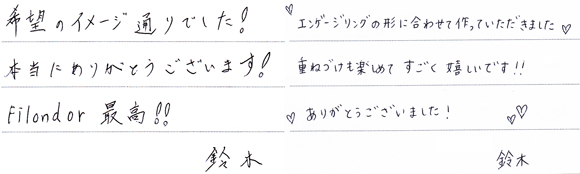 希望のイメージ通りでした!
本当にありがとうございます!
Filondor 最高!!
鈴木
♡ エンゲージリングの形に合わせて作っていただきました ♡
重ねづけも楽しめて すごく 嬉しいです!!
♡ ありがとうございました! ♡♡
鈴木